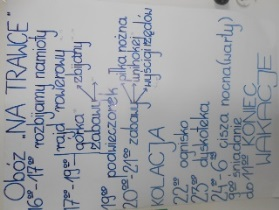 Obóz „NA TRAWCE"
16⁰⁰ 17⁰⁰ rozbijamy namioty
17⁰⁰-19⁰⁰ rajd rowerowy
górka zbijany
zabawy
19⁰⁰ podwieczorek
20⁰⁰-21⁰⁰ zabawy piłka nożna
unihokej
wyścigi rzędów
KOLACJA
22⁰⁰ ognisko
23⁰⁰ dyskoteka
cisza nocna (warty)
9⁰⁰ śniadanie
do 11⁰⁰ KONIEC
WAKACJE